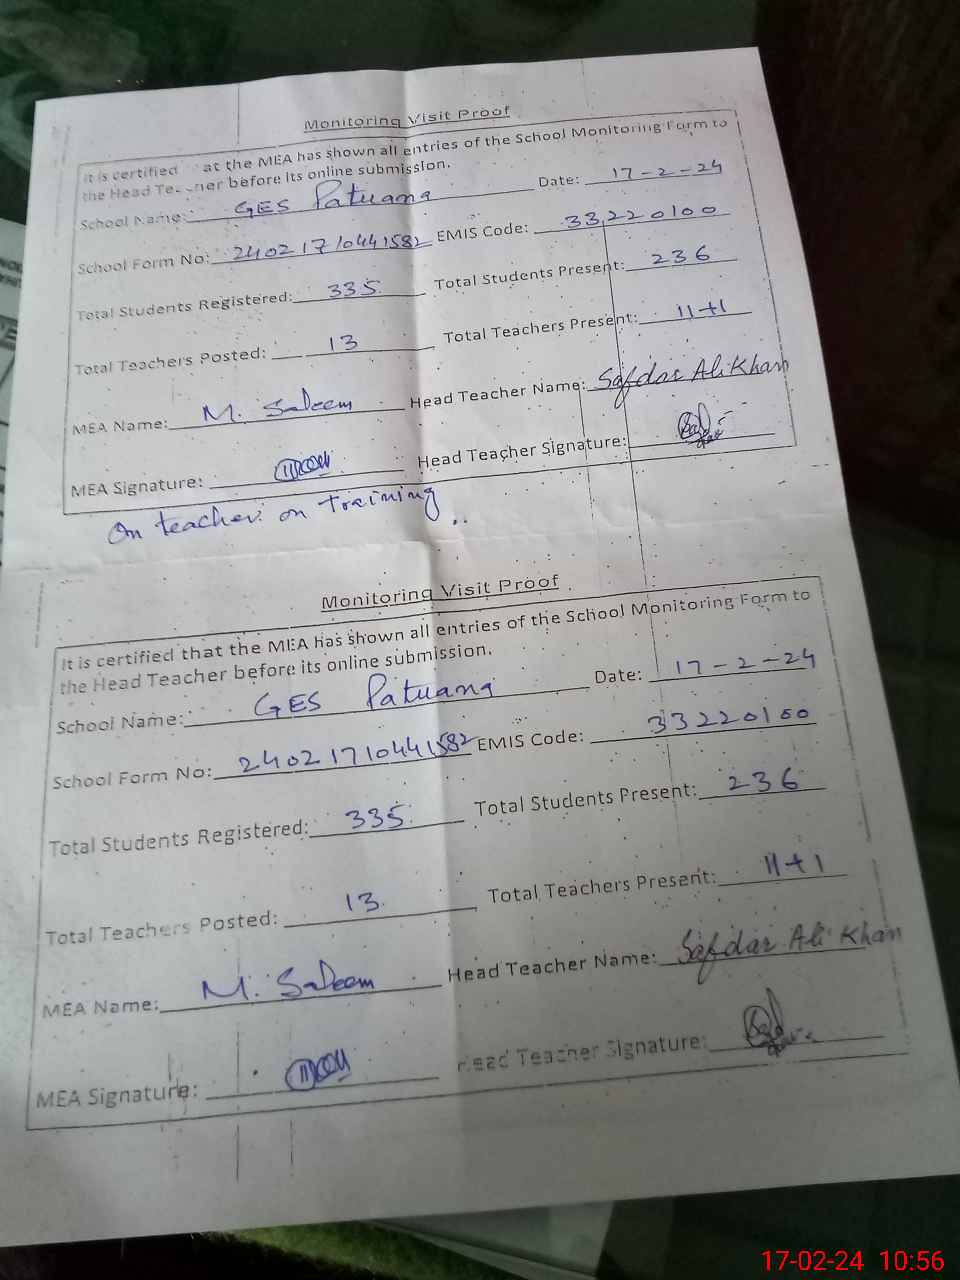 Monitoring Visit Proof
It is certified at the MEA has shown all entries of the School Monitoring Form to
the Head Te.. ner before its online submission.
School Name: GES Patuana Date: 17-2-24
School Form No: 24021710441582 EMIS Code: 33220100
Total Students Registered: 335 Total Students Present: 236
Total Teachers Posted: 13 Total Teachers Present: 11+1
MEA Name: M. Saleem Head Teacher Name: Safdar Ali Khan
MEA Signature: Head Teacher Signature:
On teacher on training
Monitoring Visit Proof
It is certified that the MEA has shown all entries of the School Monitoring Form to
the Head Teacher before its online submission.
School Name: GES Patuana Date: 17-2-24
School Form No: 24021710441582 EMIS Code: 33220100
Total Students Registered: 335 Total Students Present: 236
Total Teachers Posted: 13 Total Teachers Present: 11+1
MEA Name: M. Saleem Head Teacher Name: Safdar Ali Khan
MEA Signature: Head Teacher Signature:
17-02-24 10:56